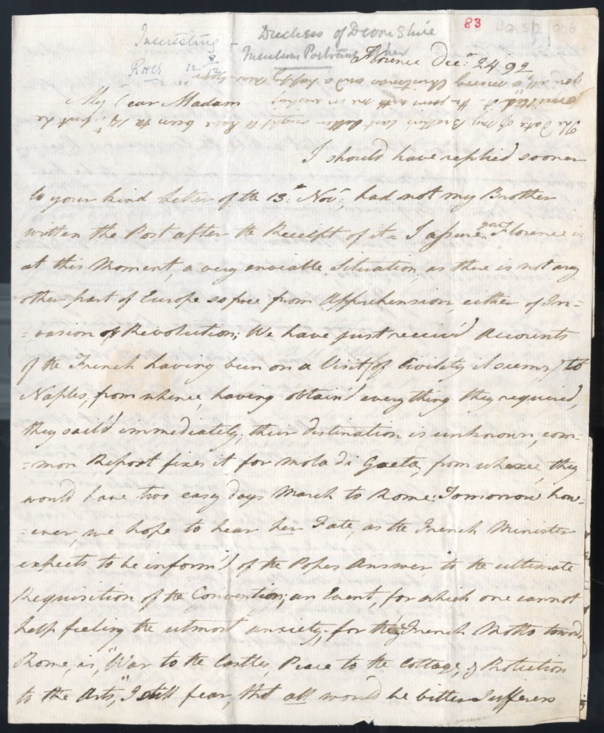 83
Duchess of Devonshire
Interesting -
Mentions Portrait
Florence Decr. 24. 92
My Dear Madam
I should have replied sooner
to your kind Letter of the 13th Novr, had not my Brother
written the Post after the Receipt of it. I assure you Florence is
at this Moment, a very enviable Situation, as there is not any
other part of Europe so free from Apprehension either of In=
=vasion or Revolution; We have just receiv'd Accounts
of the French having been on a Visit (of Civility it seems) to
Naples, from whence, having obtain'd every thing they required,
they sail'd immediately, their destination is unknown, com=
=mon Report fixes it for Mola di Gaeta, from whence, they
would have two easy days March to Rome. Tomorrow how=
=ever, we hope to hear her Fate, as the French Minister
expects to be inform'd of the Popes Answer to the ultimate
Requisition of the Convention; an Event, for which one cannot
help feeling the utmost anxiety; for the French Motto towards
Rome, is, "War to the Castle, Peace to the Cottage, & Protection
to the Arts", I still fear, that all would be bitter Sufferers